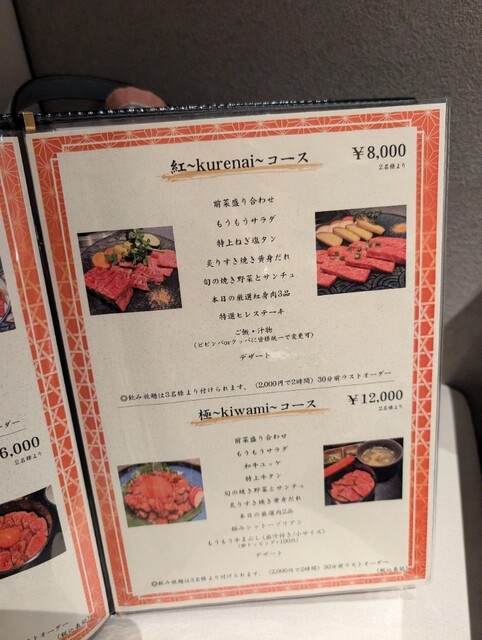 紅~kurenai~コース
¥8,000
2名様より
前菜盛り合わせ
もうもうサラダ
特上ねぎ塩タン
炙りすき焼き黄身だれ
旬の焼き野菜とサンチュ
本日の厳選紅身肉3品
特選ヒレステーキ
ご飯・汁物
(ビビンバorクッパに皆様統一で変更可)
デザート
◎飲み放題は3名様より付けられます。(2,000円で2時間)30分前ラストオーダー
極~kiwami~コース
¥12,000
2名様より
前菜盛り合わせ
もうもうサラダ
和牛ユッケ
特上牛タン
旬の焼き野菜とサンチュ
炙りすき焼き黄身だれ
本日の厳選肉2品
極みシャトーブリアン
もうもう牛まぶし(出汁付き/小サイズ)
デザート
30分前ラストオーダー
6,000
2名様より
オーダー